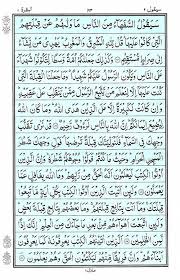 سيقول ٢
البقرة ٢
سَيَقُولُ السُّفَهَآءُ مِنَ النَّاسِ مَا وَلّٰىهُمْ عَنْ قِبْلَتِهِمُ
الَّتِىْ كَانُوْا عَلَيْهَا قُلْ لِّلّٰهِ الْمَشْرِقُ وَالْمَغْرِبُ يَهْدِىْ مَنْ
يَّشَآءُ اِلٰى صِرَاطٍ مُّسْتَقِيْمٍ وَكَذٰلِكَ جَعَلْنٰكُمْ اُمَّةً وَّسَطًا لِّتَكُوْنُوْا شُهَدَآءَ
عَلَى النَّاسِ وَيَكُوْنَ الرَّسُوْلُ عَلَيْكُمْ شَهِيْدًا وَمَا جَعَلْنَا الْقِبْلَةَ
الَّتِىْ كُنْتَ عَلَيْهَآ اِلَّا لِنَعْلَمَ مَنْ يَّتَّبِعُ الرَّسُوْلَ مِمَّنْ يَّنْقَلِبُ عَلٰى
عَقِبَيْهِ وَاِنْ كَانَتْ لَكَبِيْرَةً اِلَّا عَلَى الَّذِيْنَ هَدَى اللّٰهُ وَمَا كَانَ اللّٰهُ
لِيُضِيْعَ اِيْمَانَكُمْ اِنَّ اللّٰهَ بِالنَّاسِ لَرَءُوْفٌ رَّحِيْمٌ قَدْ نَرٰى
تَقَلُّبَ وَجْهِكَ فِى السَّمَآءِ فَلَنُوَلِّيَنَّكَ قِبْلَةً تَرْضٰىهَا فَوَلِّ وَجْهَكَ
شَطْرَ الْمَسْجِدِ الْحَرَامِ وَحَيْثُ مَا كُنْتُمْ فَوَلُّوْا وُجُوْهَكُمْ شَطْرَهٗ وَاِنَّ الَّذِيْنَ
اُوْتُوا الْكِتٰبَ لَيَعْلَمُوْنَ اَنَّهُ الْحَقُّ مِنْ رَّبِّهِمْ وَمَا اللّٰهُ بِغَافِلٍ عَمَّا يَعْمَلُوْنَ
وَلَئِنْ اَتَيْتَ الَّذِيْنَ اُوْتُوا الْكِتٰبَ بِكُلِّ اٰيَةٍ مَّا تَبِعُوْا قِبْلَتَكَ وَمَآ اَنْتَ
بِتَابِعٍ قِبْلَتَهُمْ وَمَا بَعْضُهُمْ بِتَابِعٍ قِبْلَةَ بَعْضٍ وَلَئِنِ
اتَّبَعْتَ اَهْوَآءَهُمْ مِّنْ بَعْدِ مَا جَآءَكَ مِنَ الْعِلْمِ اِنَّكَ اِذًا لَّمِنَ
الظّٰلِمِيْنَ الَّذِيْنَ اٰتَيْنٰهُمُ الْكِتٰبَ يَعْرِفُوْنَهٗ كَمَا يَعْرِفُوْنَ
اَبْنَآءَهُمْ وَاِنَّ فَرِيْقًا مِّنْهُمْ لَيَكْتُمُوْنَ الْحَقَّ وَهُمْ يَعْلَمُوْنَ